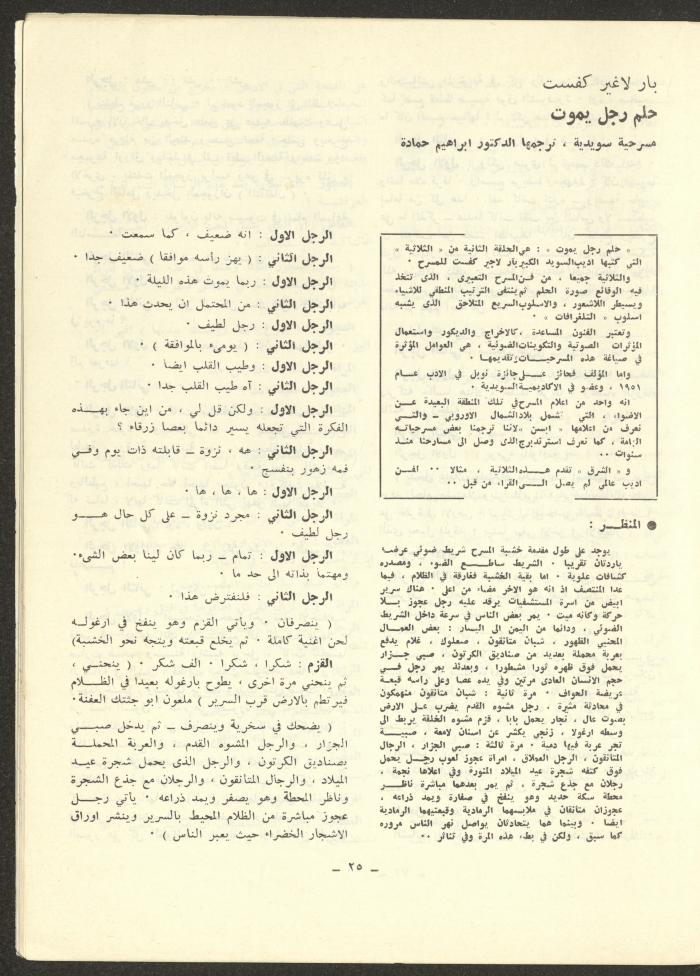 بار لاغير كفست
حلم رجل يموت
مسرحية سويدية ، ترجمها الدكتور ابراهيم حمادة
« حلم رجل يموت » : هي الحلقة الثانية من « الثلاثية »
التي كتبها اديب السويد الكبير بار لاجير كفست للمسرح ٠
والثلاثية جميعا ، من فن المسرح التعبيري ، الذى تتخذ
فيه الوقائع صورة الحلم ثم ينتفى الترتيب المنطقي للاشياء
ويسيطر اللاشعور ، والاسلوب السريع المتلاحق الذى يشبه
اسلوب « التلغرافات » ٠
وتعتبر الفنون المساعدة ، كالاخراج والديكور واستعمال
المؤثرات الصوتية والتكوينات الضوئية ، هي العوامل المؤثرة
في صياغة هذه المسرحيات وتقديمها ٠
واما المؤلف فحائز على جائزة نوبل في الادب عام
١٩٥١ ، وعضو في الاكاديمية السويدية ٠
انه واحد من اعلام المسرح في تلك المنطقة البعيدة عن
الاضواء ، التي تشمل بلاد الشمال الاوروبي – والتي
نعرف من اعلامها « ابسن » لاننا ترجمنا بعض مسرحياته
الهامة ، كما نعرف استرندبرج الذى وصل الى مسارحنا منذ
سنوات ٠٠
و « الشرق » تقدم هذه الثلاثية ، مثالا ٠٠ لفن
اديب عالمي لم يصل الى القراء من قبل ٠٠
● المنظر :
يوجد على طول مقدمة خشبة المسرح شريط ضوئي عرضه
ياردتان تقريبا ٠ الشريط ساطع الضوء ، ومصدره
كشافات علوية ٠ اما بقية الخشبة فغارقة في الظلام ، فيما
عدا المنتصف اذ انه هو الاخر مضاء من اعلى ٠ هناك سرير
ابيض من اسرة المستشفيات يرقد عليه رجل عجوز بلا
حركة وكأنه ميت ٠ يمر بعض الناس في سرعة داخل الشريط
الضوئي ، ودائما من اليمين الى اليسار : بعض العمال
المحنيي الظهور ، شبان متأنقون ، صعلوك ، غلام يدفع
بعربة محملة بعديد من صناديق الكرتون ، صبي جزار
يحمل فوق ظهره ثورا مشطورا ، وبعدئذ يمر رجل في
حجم الانسان العادى مرتين وفي يده عصا وعلى رأسه قبعة
عريضة الحواف ٠ مرة ثانية : شبان متأنقون منهمكون
في محادثة مثيرة ، رجل مشوه القدم يضرب على الارض
بصوت عال ، نجار يحمل بابا ، قزم مشوه الخلقة يربط الى
وسطه ارغولا ، زنجي يكشر عن اسنان لامعة ، صبية
تجر عربة فيها دمية ٠ مرة ثالثة : صبي الجزار ، الرجال
المتأنقون ، الرجل العملاق ، امراة عجوز لعوب رجل يحمل
فوق كتفه شجرة عيد الميلاد المنورة وفي اعلاها نجمة ،
رجلان مع جذع شجرة ، ثم يمر بعدهما مباشرة ناظر
محطة سكة حديد وهو ينفخ في صفارة ويمد ذراعه ،
عجوزان متأنقان في ملابسهما الرمادية وقبعتيهما الرمادية
ايضا ٠ وبينما هما يتحادثان يواصل نهر الناس مروره
كما سبق ، ولكن في بطء هذه المرة وفي تناثر ٠٠
الرجل الاول : انه ضعيف ، كما سمعت ٠
الرجل الثاني : ( يهز رأسه موافقا ) ضعيف جدا ٠
الرجل الاول : ربما يموت هذه الليلة ٠
الرجل الثاني : من المحتمل ان يحدث هذا ٠
الرجل الاول : رجل لطيف ٠
الرجل الثاني : ( يومىء بالموافقة ) ٠
الرجل الاول : وطيب القلب ايضا ٠
الرجل الثاني : آه طيب القلب جدا ٠
الرجل الاول : ولكن قل لي ، من اين جاء بهذه
الفكرة التي تجعله يسير دائما بعصا زرقاء ؟
الرجل الثاني : هه ، نزوة – قابلته ذات يوم وفي
فمه زهور بنفسج ٠
الرجل الاول : ها ، ها ، ها ٠
الرجل الثاني : مجرد نزوة – على كل حال هو
رجل لطيف ٠
الرجل الاول : تمام – ربما كان لينا بعض الشىء ٠
ومهتما بذاته الى حد ما ٠
الرجل الثاني : فلنفترض هذا ٠
( ينصرفان ٠ ويأتي القزم وهو ينفخ في ارغوله
لحن اغنية كاملة ٠ ثم يخلع قبعته ويتجه نحو الخشبة)
القزم : شكرا ، شكرا ٠ الف شكر ٠ ( ينحني ،
ثم ينحني مرة اخرى ، يطوح بارغوله بعيدا في الظلام
فيرتطم بالارض قرب السرير ) ملعون ابو جثتك العفنة ٠
( يضحك في سخرية وينصرف – ثم يدخل صبي
الجزار ، والرجل المشوه القدم ، والعربة المحملة
بصناديق الكرتون ، والرجل الذى يحمل شجرة عيد
الميلاد ، والرجال المتأنقون ، والرجلان مع جذع الشجرة
وناظر المحطة وهو يصفر ويمد ذراعه ٠ يأتي رجل
عجوز مباشرة من الظلام المحيط بالسرير وينشر اوراق
الاشجار الخضراء حيث يعبر الناس ) ٠
– ٢٥ –